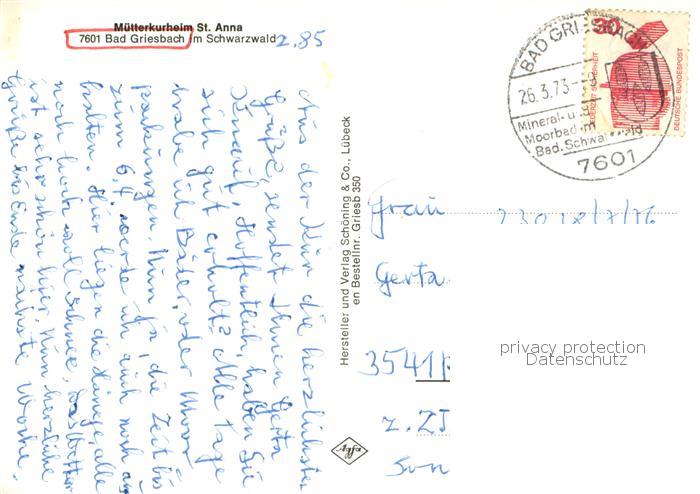 Mütterkurheim St. Anna
7601 Bad Griesbach im Schwarzwald
2.85
Aus der Kur die herzlichsten
Grüße, sendet Ihnen Gerta
Hoffentlich, haben Sie
sich gut erholt? Alle Tage
habe ich Bäder, oder Moor
packungen. Nun ja, die Zeit bis
zum 6.4. werde ich auch noch aus
halten. Hier liegen die Hänge, alle
noch hoch voll Schnee, das Wetter
ist sehr schön hier. Nun herzliche
Grüße bis Ende nächste Woche.
Hersteller und Verlag Schöning & Co., Lübeck
en Bestellnr. Griesb 350
Agfa
BAD GRIESBACH
26.3.73
Mineral- u.
Moorbad im
Bad. Schwarzwald
7601
30
JEDERZEIT SICHERHEIT
DEUTSCHE BUNDESPOST
Frau
Gerta
3541
z. Zt
privacy protection
Datenschutz